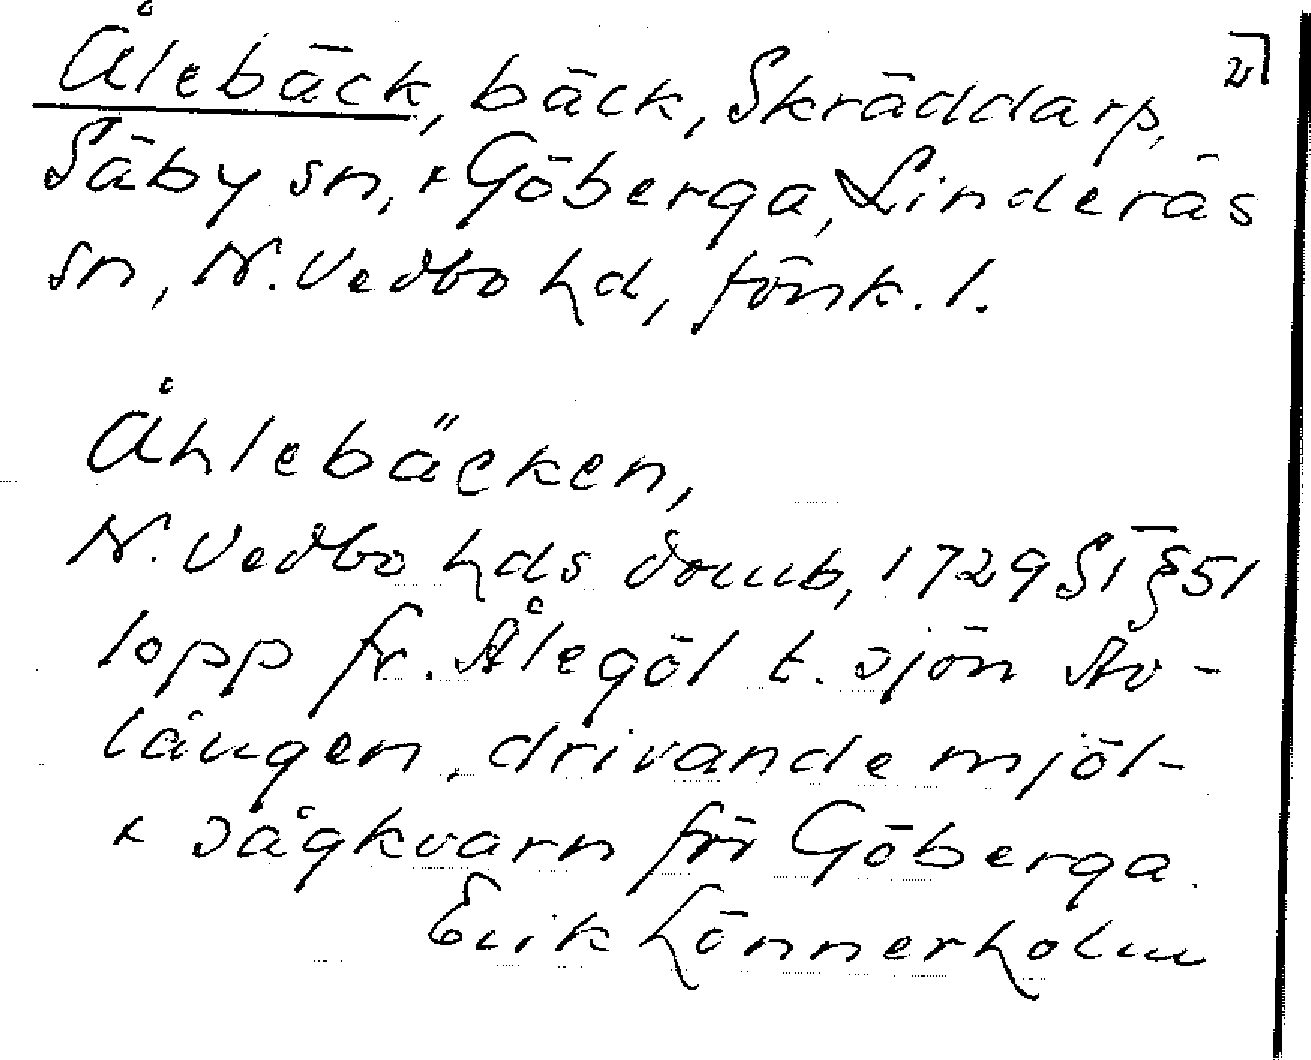 Ålebäck, bäck, Skräddarp,
Säby sn, + Göberga, Linderås
sn, N. Vedbo hd, Jönk. l.
Åhlebäcken,
N. Vedbo hds domb, 1729 S T § 51
lopp fr. Ålegöl t. sjön Av-
lången, drivande mjöl-
+ sågkvarn för Göberga.
Erik Lönnerholm